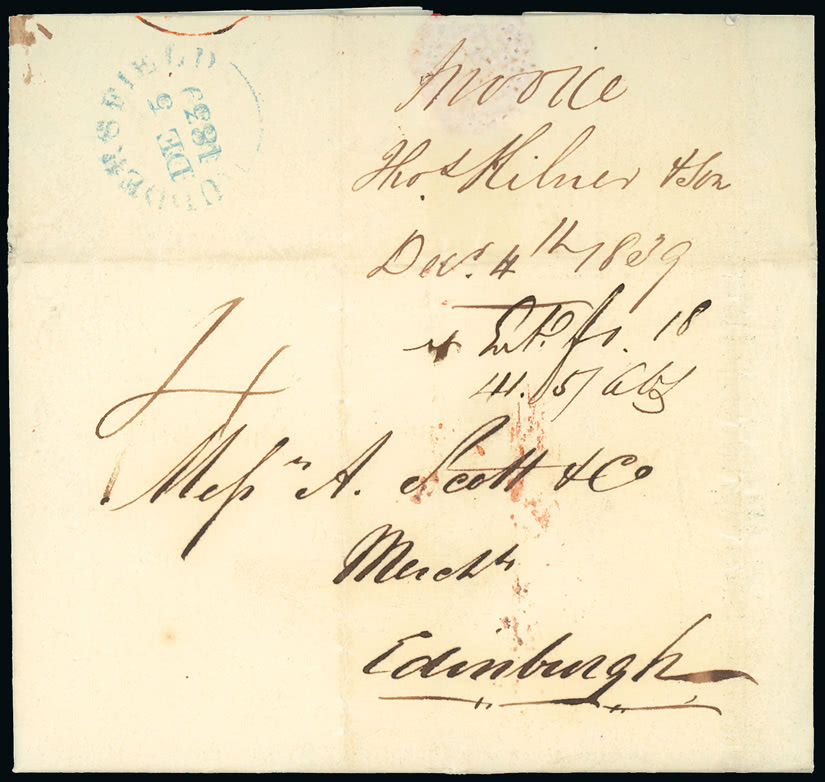 HUDDERSFIELD
DE 5
1839
Invoice
Thos Kilner & Son
Decr. 4th 1839
4
Messrs A. Scott & Co
Merchts
Edinburgh